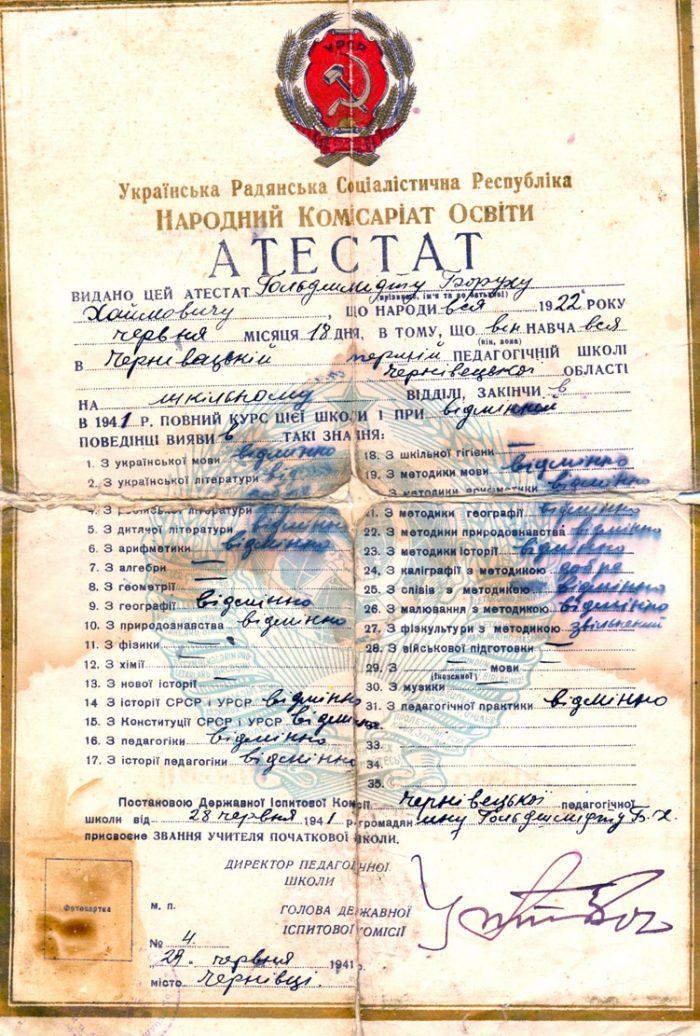 УРСР
Українська Радянська Соціалістична Республіка
НАРОДНИЙ КОМІСАРІАТ ОСВІТИ
АТЕСТАТ
ВИДАНО ЦЕЙ АТЕСТАТ Гольдшмидту Боруху
(прізвище, ім'я та по батькові)
Хаимовичу, ЩО НАРОДИВСЯ 1922 РОКУ
червня МІСЯЦЯ 18 ДНЯ, В ТОМУ, ЩО він НАВЧАВСЯ
(він, вона)
В Чернівецькій першій ПЕДАГОГІЧНІЙ ШКОЛІ
Чернівецької ОБЛАСТІ
НА шкільному ВІДДІЛІ, ЗАКІНЧИВ
В 1941 Р. ПОВНИЙ КУРС ЦІЄЇ ШКОЛИ І ПРИ відмінній
ПОВЕДІНЦІ ВИЯВИВ ТАКІ ЗНАННЯ:
1. З української мови відмінно
2. З української літератури
4. З російської літератури
5. З дитячої літератури відмінно
6. З арифметики відмінно
7. З алгебри —
8. З геометрії —
9. З географії відмінно
10. З природознавства відмінно
11. З фізики —
12. З хімії —
13. З нової історії —
14 З історії СРСР і УРСР відмінно
15. З Конституції СРСР і УРСР відмінно
16. З педагогіки відмінно
17. З історії педагогіки відмінно
18. З шкільної гігієни —
19. З методики мови відмінно
З методики арифметики відмінно
21. З методики географії відмінно
22. З методики природознавства відмінно
23. З методики історії відмінно
24. З каліграфії з методикою добре
25. З співів з методикою відмінно
26. З малювання з методикою відмінно
27. З фізкультури з методикою звільнений
28. З військової підготовки —
29. З — мови —
(іноземної)
30. З музики —
31. З педагогічної практики відмінно
32.
33.
34.
35.
Постановою Державної Іспитової Комісії Чернівецької педагогічної
школи від 28 червня 1941 р. громадянину Гольдшмидту Б. Х.
присвоєне ЗВАННЯ УЧИТЕЛЯ ПОЧАТКОВОЇ ШКОЛИ.
ДИРЕКТОР ПЕДАГОГІЧНОЇ
ШКОЛИ
Фотокартка
М. П.
ГОЛОВА ДЕРЖАВНОЇ
ІСПИТОВОЇ КОМІСІЇ
№ 4
"29" червня 1941 р.
місто Чернівці.